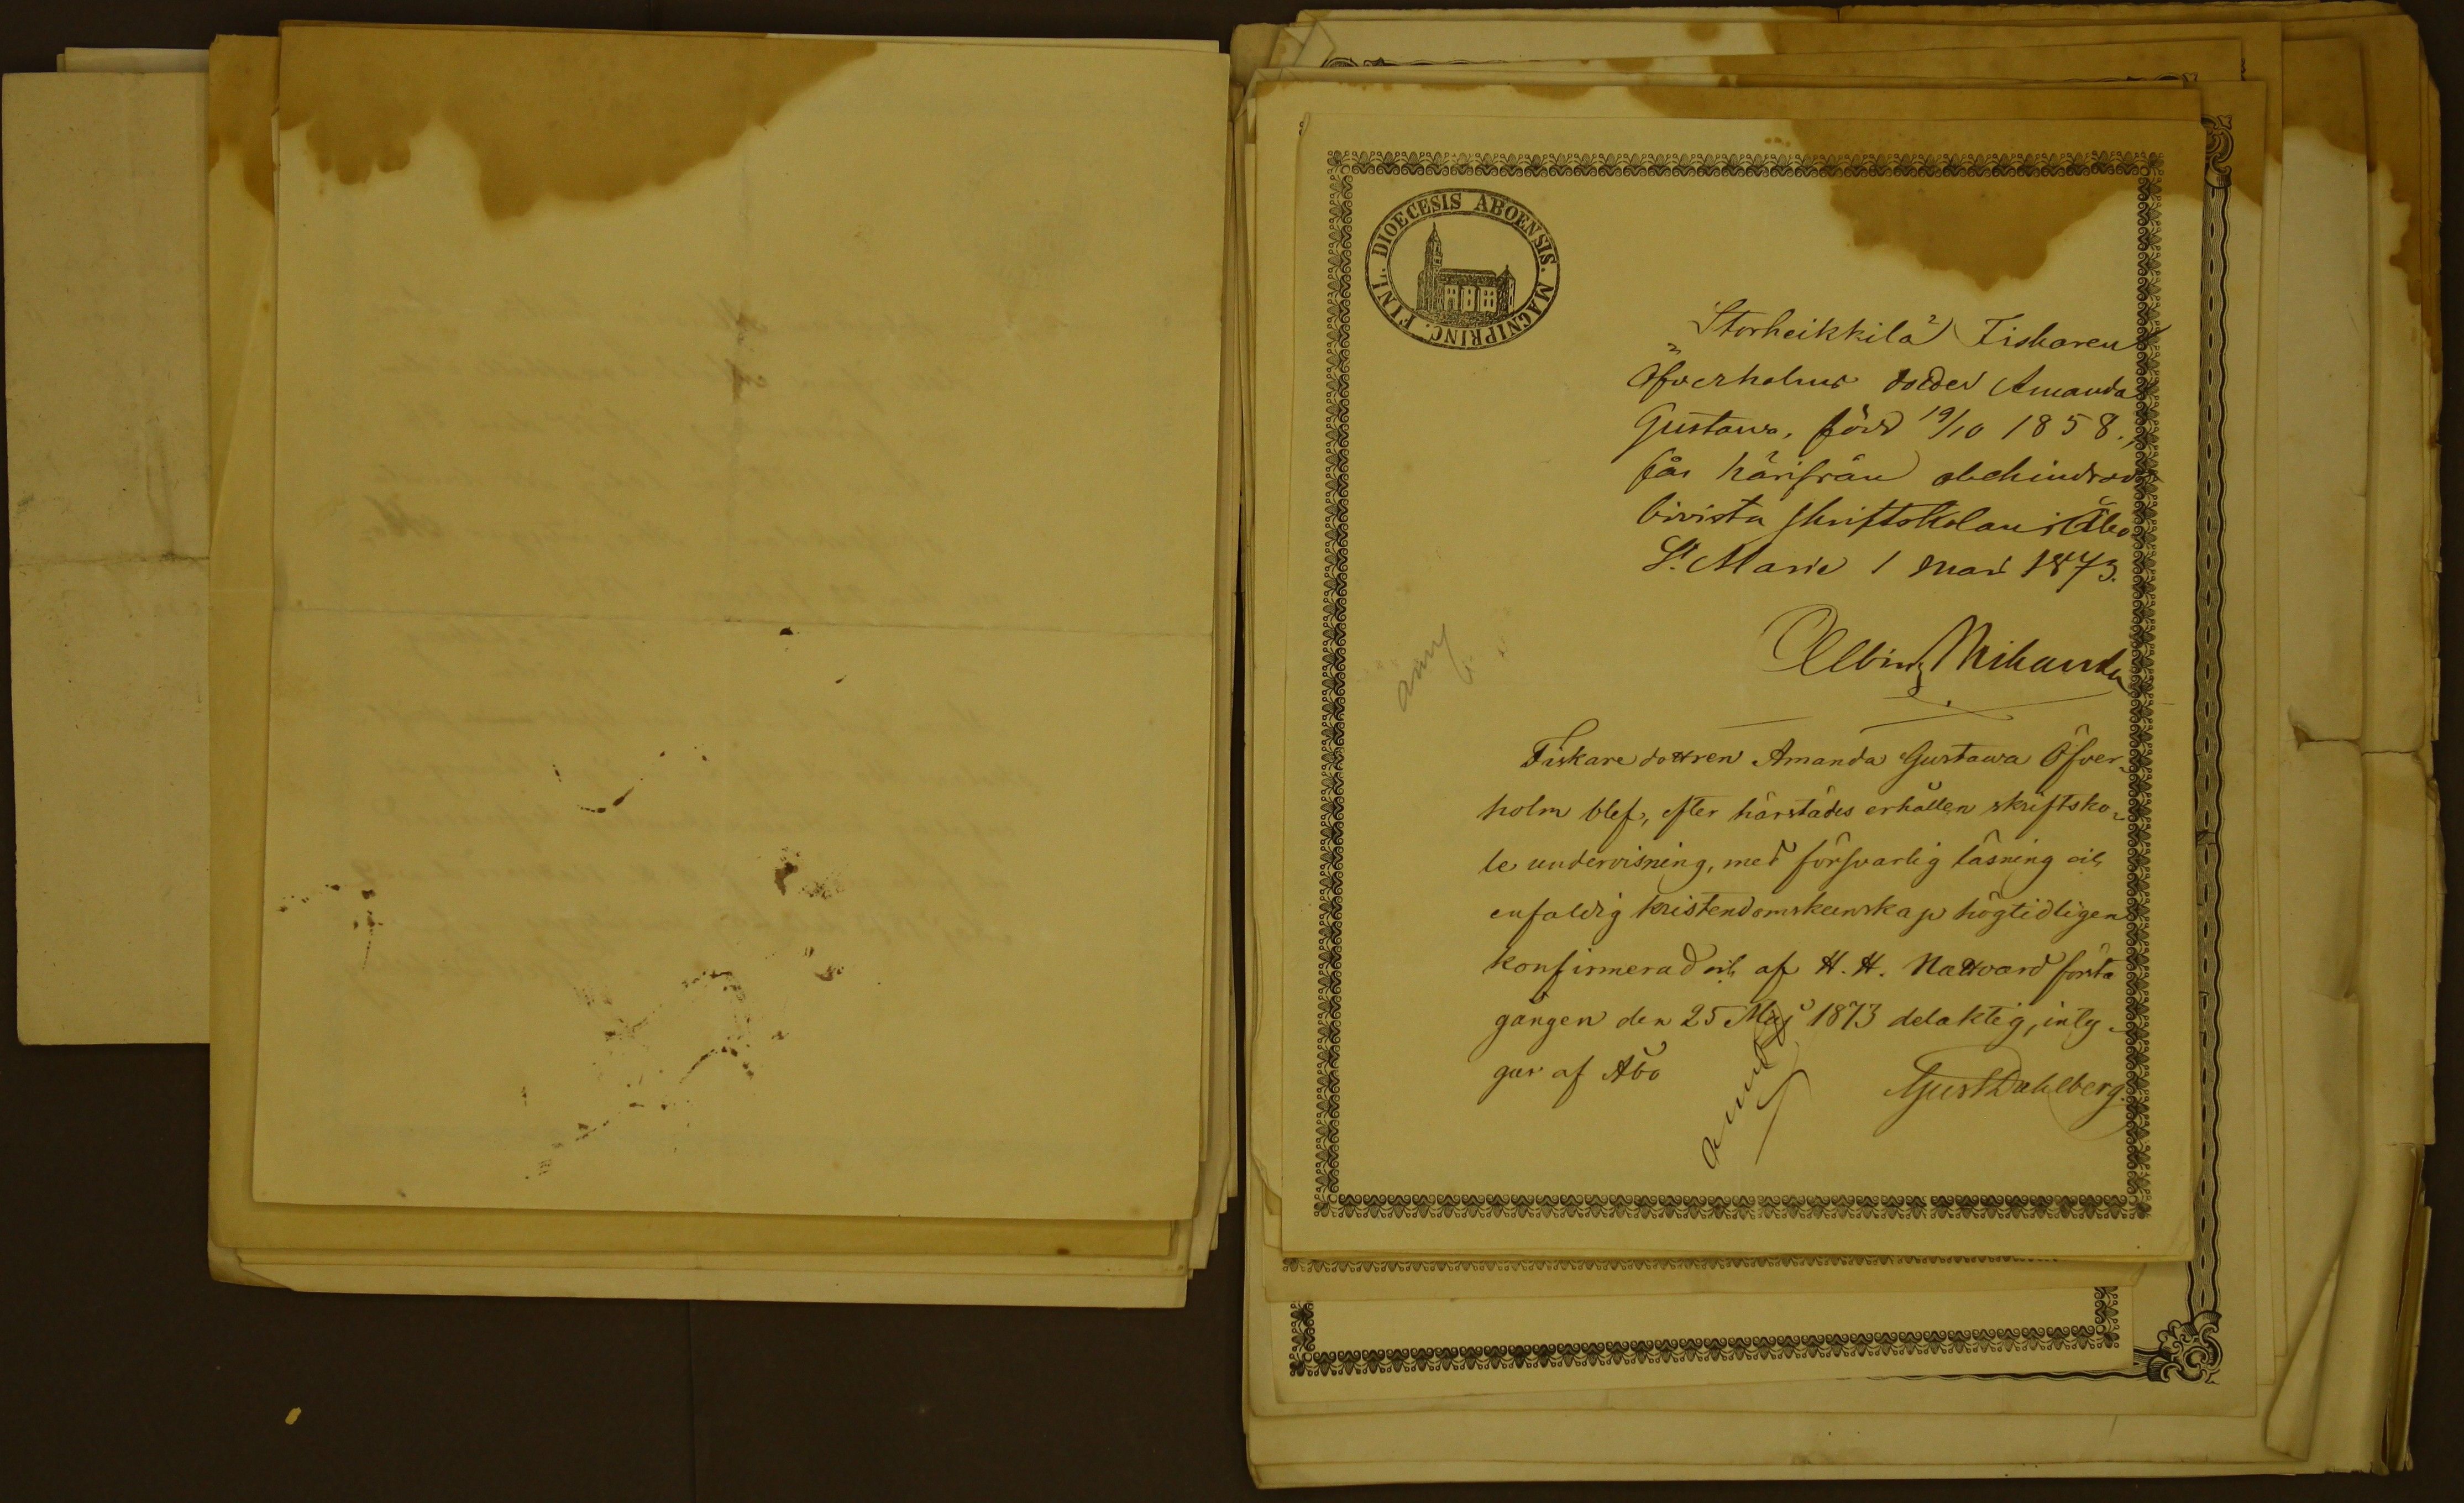 FINL. DIOECESIS ABOENSIS. MAGNIPRINC.
Storheikkilä Fiskaren
Öfverholms dotter Amanda
Gustava, född 19/10 1858.,
får härifrån obehindradt
bivista skriftskolan i Åbo
St Marie 1 Mars 1873.
Albin
Fiskaredottren Amanda Gustava Öfver-
holm blef, efter härstädes erhållen skriftsko-
le undervisning, med försvarlig läsning och
enfaldig kristendomskunskap högtidligen
konfirmerad och af H. H. Nattvard första
gången den 25 Maj 1873 delaktig, inty-
gar af Åbo
Gust Dahlberg.
anm
anm